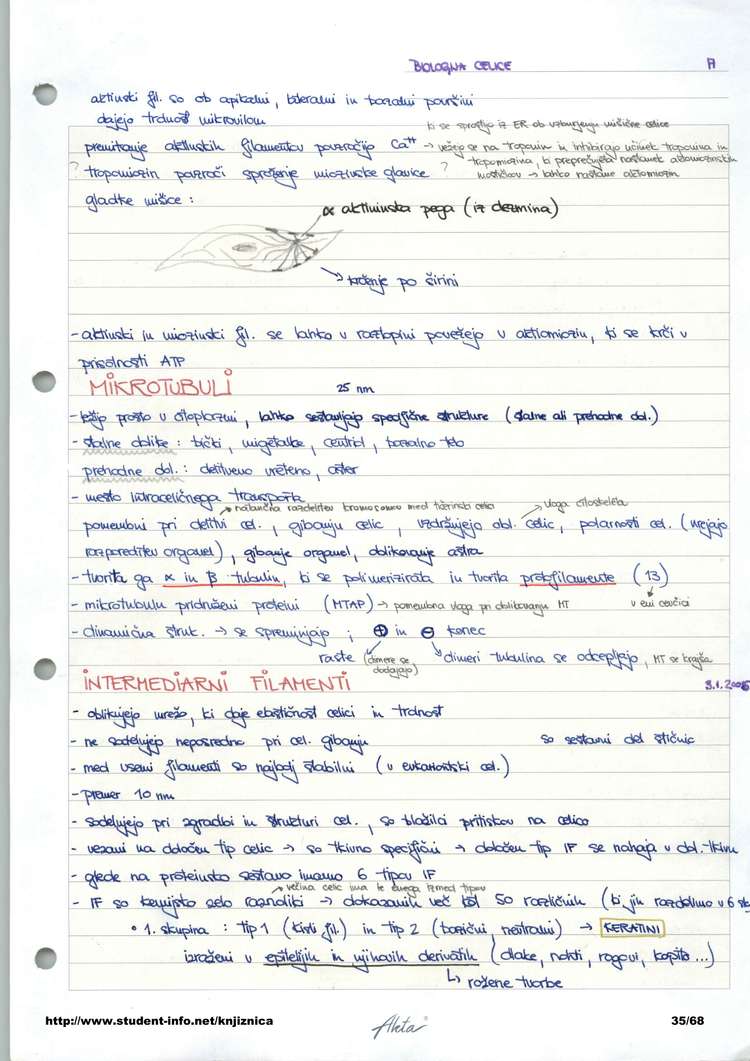 BIOLOGIJA CELICE
aktinski fil. so ob apikalni, lateralni in bazalni površini
dajejo trdnost mikrovilom
ki se sprostijo iz ER ob vzburjenju mišične celice
premikanje aktinskih filamentov povzročijo Ca++ → vežejo se na troponin in inhibirajo učinek troponina in
? tropomiozin povzroči sproženje miozinske glavice ? tropomiozina, ki preprečujeta nastanek aktomiozinskih
mostičkov → lahko nastane aktomiozin
gladke mišice :
α aktininska pega (iz dezmina)
→ krčenje po širini
- aktinski in miozinski fil. se lahko v raztopini povežejo v aktiomiozin, ki se krči v
prisotnosti ATP
MIKROTUBULI 25 nm
- ležijo prosto v citoplazmi, lahko sestavljajo specifične strukture (stalne ali prehodne obl.)
- stalne oblike : bički, migetalke, centriol, bazalno telo
prehodne obl. : delitveno vreteno, aster
- mesto intraceličnega transporta
→ natančna razdelitev kromosomov med hčerinski celici → vloga citoskeleta
pomembni pri delitvi cel., gibanju celic, vzdržujejo obl. celic, polarnosti cel. (urejajo
razporeditev organel), gibanje organel, oblikovanje astra
- tvorita ga α in β tubulin, ki se polimerizirata in tvorita protofilamente (13)
- mikrotubulu pridruženi proteini (MTAP) → pomembna vloga pri oblikovanju MT v eni cevčici
- dinamična struk. → se spreminjajo ; ⊕ in ⊖ konec
raste (dimere se dodajajo) dimeri tubulina se odcepljajo, MT se krajša
INTERMEDIARNI FILAMENTI
- oblikujejo mrežo, ki daje elastičnost celici in trdnost
- ne sodelujejo neposredno pri cel. gibanju so sestavni del stičnic
- med vsemi filamenti so najbolj stabilni (v eukariontski cel.)
- premer 10 nm
- sodelujejo pri zgradbi in strukturi cel., so blažilci pritiskov na celico
- vezani na določen tip celic → so tkivno specifični → določen tip IF se nahaja v dol. tkivu
- glede na proteinsko sestavo imamo 6 tipov IF
→ večina celic ima le enega izmed tipov
- IF so kemijsko zelo raznoliki → dokazanih več kot 50 različnih (ki jih razdelimo v 6 sk
• 1. skupina : tip 1 (kisli fil.) in tip 2 (bazični, nevtralni) → KERATINI
izraženi v epitelijih in njihovih derivatih (dlake, nohti, rogovi, kopita ...)
↳ rožene tvorbe
http://www.student-info.net/knjiznica
Aleta
35/68